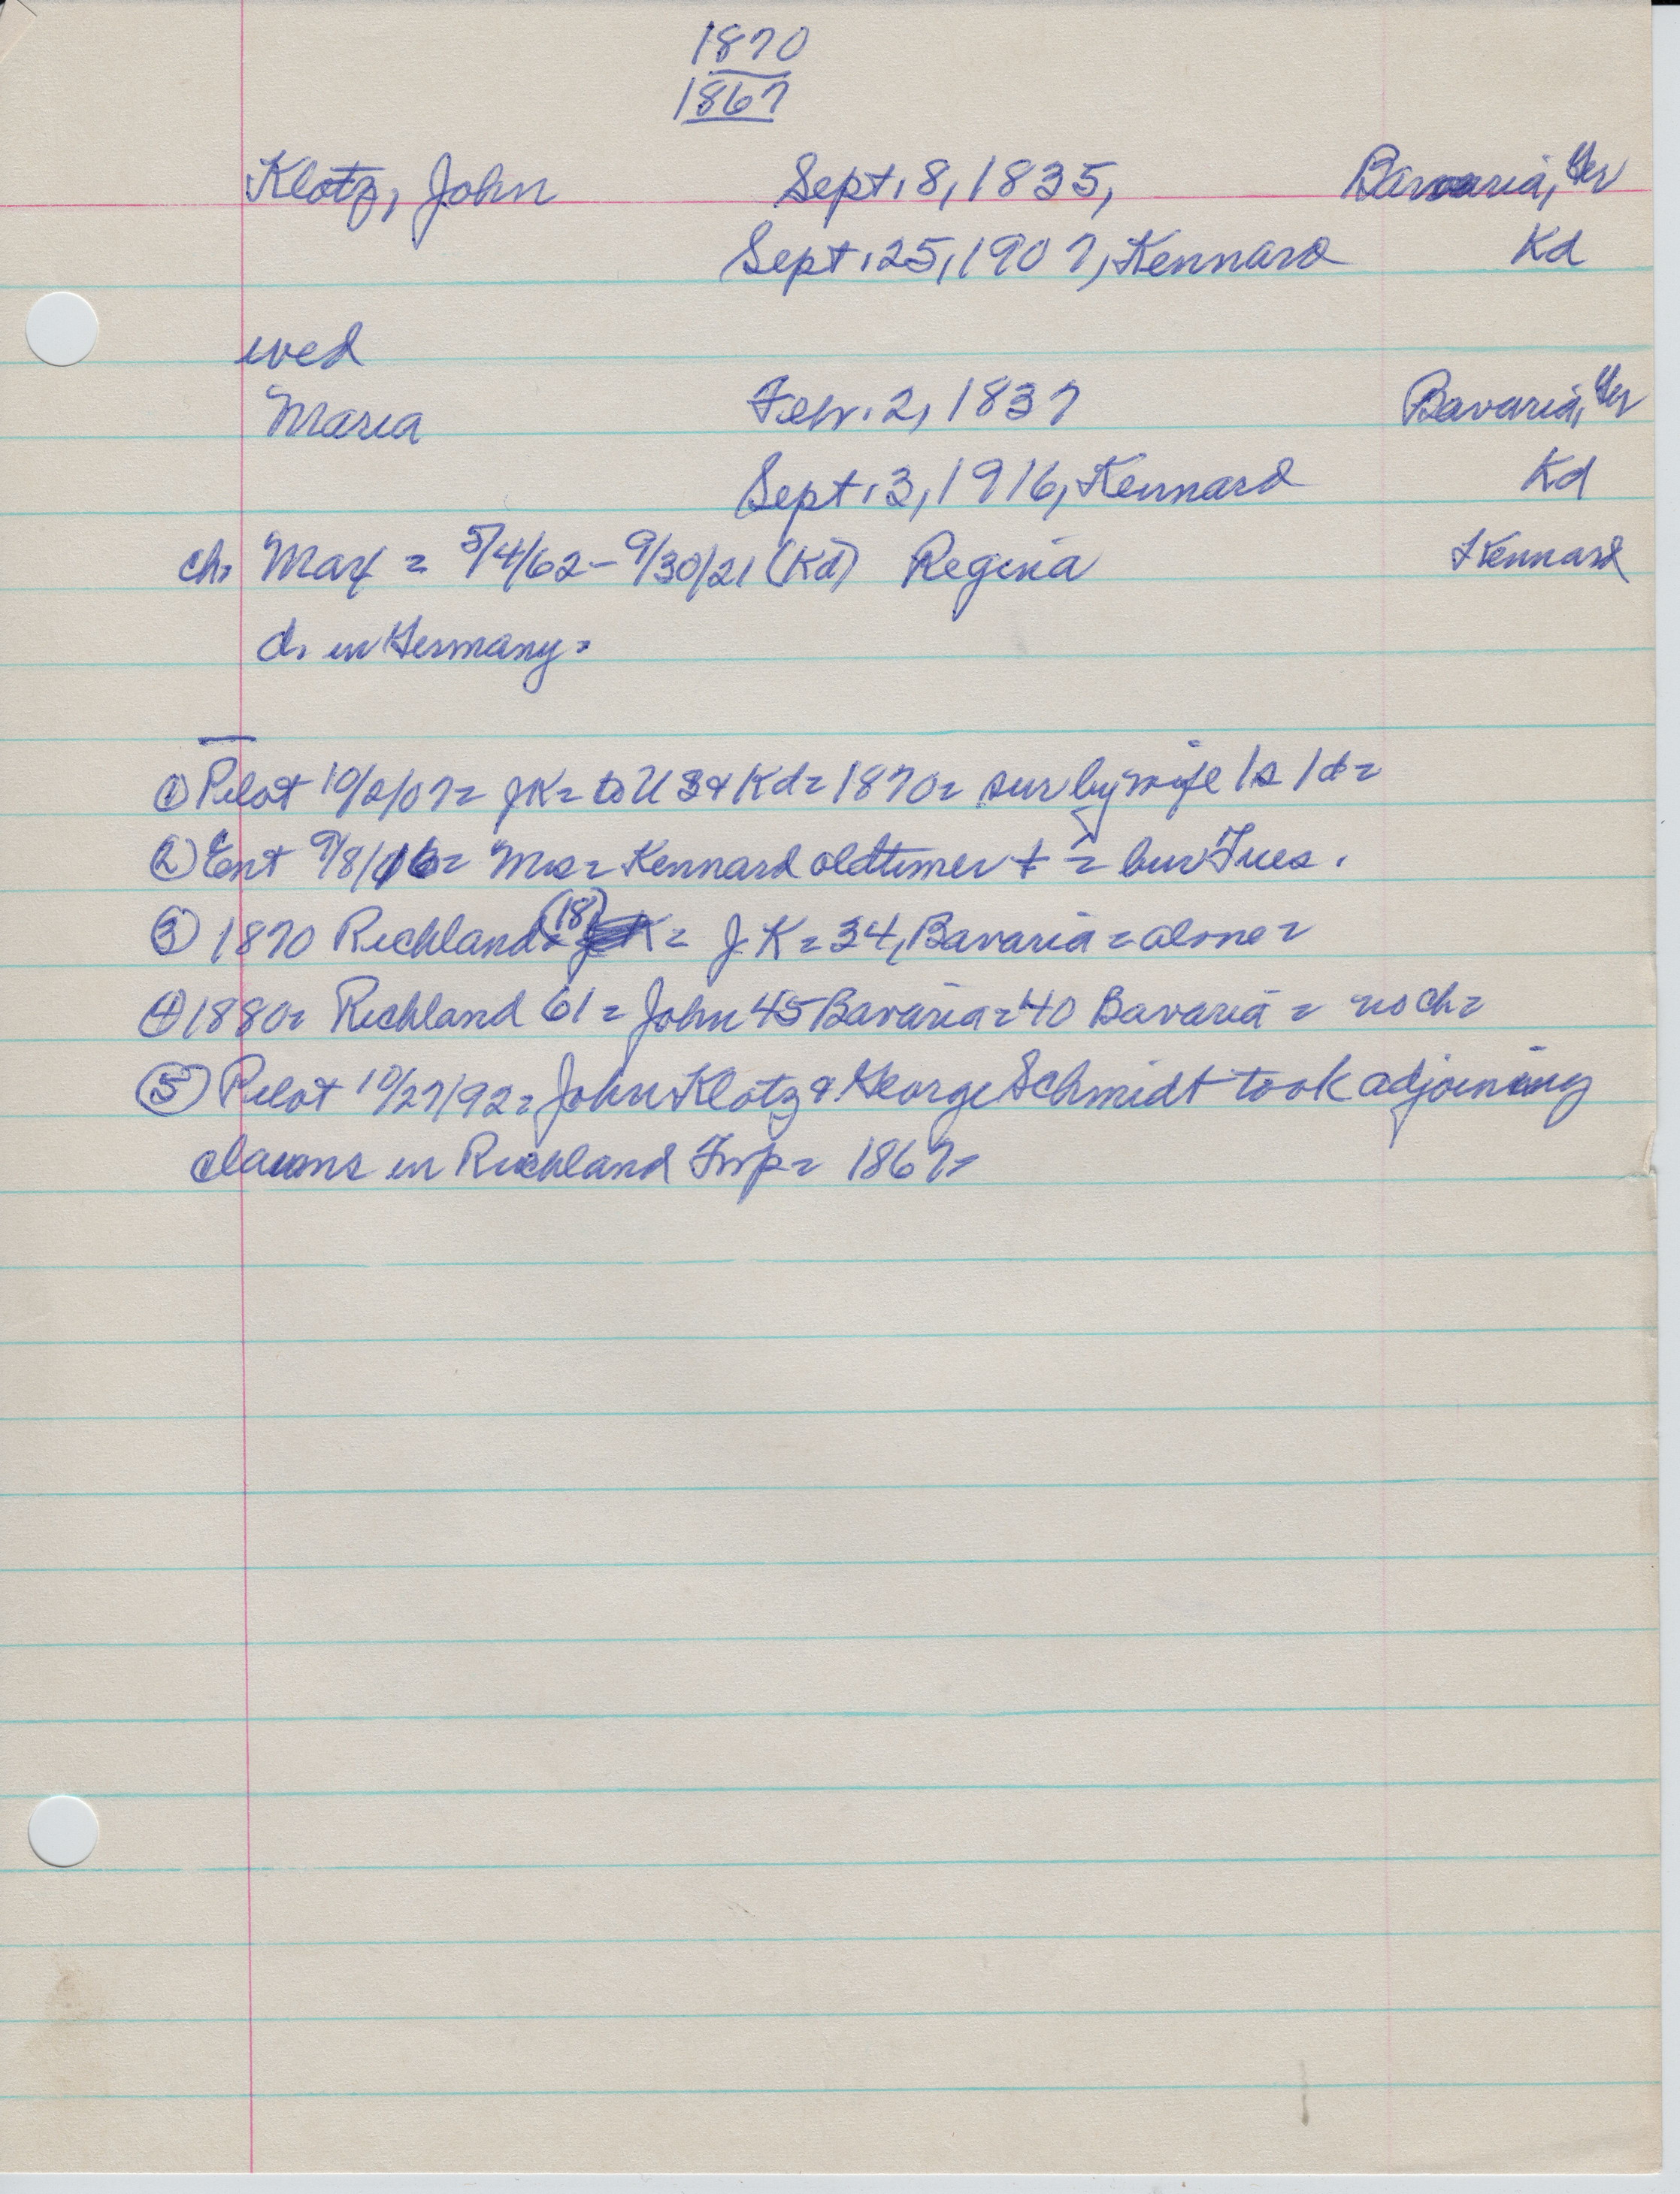 1870
1867
Klotz, John Sept. 8, 1835, Bavaria, Ger
Sept. 25, 1907, Kennard Kd
wed
Maria Febr. 2, 1837 Bavaria, Ger
Sept. 3, 1916, Kennard Kd
ch. Max = 5/4/62 - 9/30/21 (Kd) Regina Kennard
d. in Germany.
① Pilot 10/2/07 = JK = to US & Kd = 1870 = sur by wife 1s 1d =
② Ent 9/8/16 = Mrs = Kennard oldtimer + = bur Tues.
③ 1870 Richland (18) = J.K = 34, Bavaria = alone =
④ 1880 = Richland 61 = John 45 Bavaria = 40 Bavaria = no ch =
⑤ Pilot 10/27/92 = John Klotz & George Schmidt took adjoining
claims in Richland Twp = 1867 =